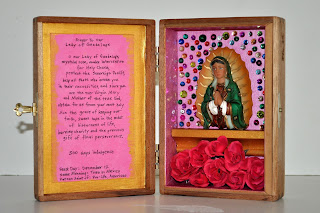 Prayer to Our
Lady of Guadalupe
O Our Lady of Guadalupe,
mystical rose, make intercession
for Holy Church,
protect the Sovereign Pontiff,
help all those who invoke you
in their necessities, and since you
are the ever Virgin Mary
and Mother of the true God,
obtain for us from your most holy
Son the grace of keeping our
faith, sweet hope in the midst
of bitterness of life,
burning charity and the precious
gift of final perseverance.
500 days indulgence
Feast Day: December 12
Patron Saint of: Pro-life, Americas